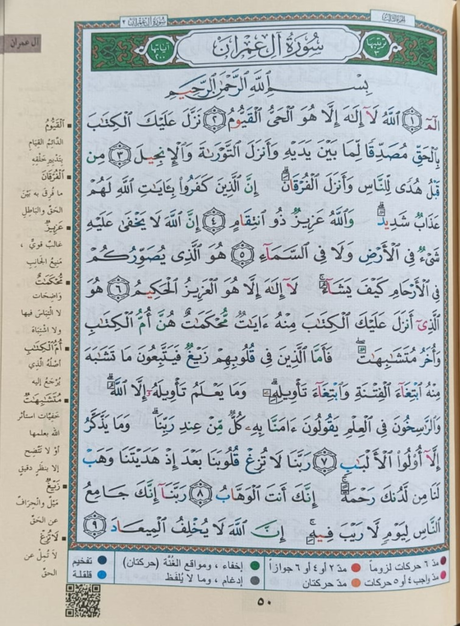 سُورَةُ آلِ عِمْرَانَ ٣
سُورَةُ آلِ عِمْرَانَ
ترتيبها ٣
آياتها ٢٠٠
بِسْمِ اللَّهِ الرَّحْمَٰنِ الرَّحِيمِ
الٓمٓ ﴿١﴾ ٱللَّهُ لَآ إِلَٰهَ إِلَّا هُوَ ٱلْحَىُّ ٱلْقَيُّومُ ﴿٢﴾ نَزَّلَ عَلَيْكَ ٱلْكِتَٰبَ
بِٱلْحَقِّ مُصَدِّقًا لِّمَا بَيْنَ يَدَيْهِ وَأَنزَلَ ٱلتَّوْرَىٰةَ وَٱلْإِنجِيلَ ﴿٣﴾ مِن
قَبْلُ هُدًى لِّلنَّاسِ وَأَنزَلَ ٱلْفُرْقَانَ ۗ إِنَّ ٱلَّذِينَ كَفَرُوا۟ بِـَٔايَٰتِ ٱللَّهِ لَهُمْ
عَذَابٌ شَدِيدٌ ۗ وَٱللَّهُ عَزِيزٌ ذُو ٱنتِقَامٍ ﴿٤﴾ إِنَّ ٱللَّهَ لَا يَخْفَىٰ عَلَيْهِ
شَىْءٌ فِى ٱلْأَرْضِ وَلَا فِى ٱلسَّمَآءِ ﴿٥﴾ هُوَ ٱلَّذِى يُصَوِّرُكُمْ
فِى ٱلْأَرْحَامِ كَيْفَ يَشَآءُ ۚ لَآ إِلَٰهَ إِلَّا هُوَ ٱلْعَزِيزُ ٱلْحَكِيمُ ﴿٦﴾ هُوَ
ٱلَّذِىٓ أَنزَلَ عَلَيْكَ ٱلْكِتَٰبَ مِنْهُ ءَايَٰتٌ مُّحْكَمَٰتٌ هُنَّ أُمُّ ٱلْكِتَٰبِ
وَأُخَرُ مُتَشَٰبِهَٰتٌ ۖ فَأَمَّا ٱلَّذِينَ فِى قُلُوبِهِمْ زَيْغٌ فَيَتَّبِعُونَ مَا تَشَٰبَهَ
مِنْهُ ٱبْتِغَآءَ ٱلْفِتْنَةِ وَٱبْتِغَآءَ تَأْوِيلِهِۦ ۗ وَمَا يَعْلَمُ تَأْوِيلَهُۥٓ إِلَّا ٱللَّهُ ۗ
وَٱلرَّٰسِخُونَ فِى ٱلْعِلْمِ يَقُولُونَ ءَامَنَّا بِهِۦ كُلٌّ مِّنْ عِندِ رَبِّنَا ۗ وَمَا يَذَّكَّرُ
إِلَّآ أُو۟لُوا۟ ٱلْأَلْبَٰبِ ﴿٧﴾ رَبَّنَا لَا تُزِغْ قُلُوبَنَا بَعْدَ إِذْ هَدَيْتَنَا وَهَبْ
لَنَا مِن لَّدُنكَ رَحْمَةً ۚ إِنَّكَ أَنتَ ٱلْوَهَّابُ ﴿٨﴾ رَبَّنَآ إِنَّكَ جَامِعُ
ٱلنَّاسِ لِيَوْمٍ لَّا رَيْبَ فِيهِ ۚ إِنَّ ٱللَّهَ لَا يُخْلِفُ ٱلْمِيعَادَ ﴿٩﴾
آل عمران
القَيُّومُ
الدَّائِمُ القِيَامِ
بِتَدْبِيرِ خَلْقِهِ
الفُرْقَانَ
مَا فُرِقَ بِهِ بَيْنَ
الحَقِّ وَالبَاطِلِ
عَزِيزٌ
غَالِبٌ قَوِيٌّ،
مَنِيعُ الجَانِبِ
مُحْكَمَٰتٌ
وَاضِحَاتٌ
لَا التِبَاسَ فِيهَا
وَلَا اشْتِبَاهَ
أُمُّ الكِتَٰبِ
أَصْلُهُ الَّذِي
يُرْجَعُ إِلَيْهِ
مُتَشَٰبِهَٰتٌ
خَفِيَّاتٌ اسْتَأْثَرَ
اللهُ بِعِلْمِهَا
أَوْ لَا تَتَّضِحُ
إِلَّا بِنَظَرٍ دَقِيقٍ
زَيْغٌ
مَيْلٌ وَانْحِرَافٌ
عَنِ الحَقِّ
لَا تُزِغْ
لَا تُمِلْ عَنِ
الحَقِّ
مدّ ٦ حركات لزوماً
مدّ ٢ أو ٤ أو ٦ جوازاً
إخفاء، ومواقع الغُنَّة (حركتان)
تفخيم
مدّ واجب ٤ أو ٥ حركات
مدّ حركتان
إدغام، وما لا يُلفظ
قلقلة
٥٠